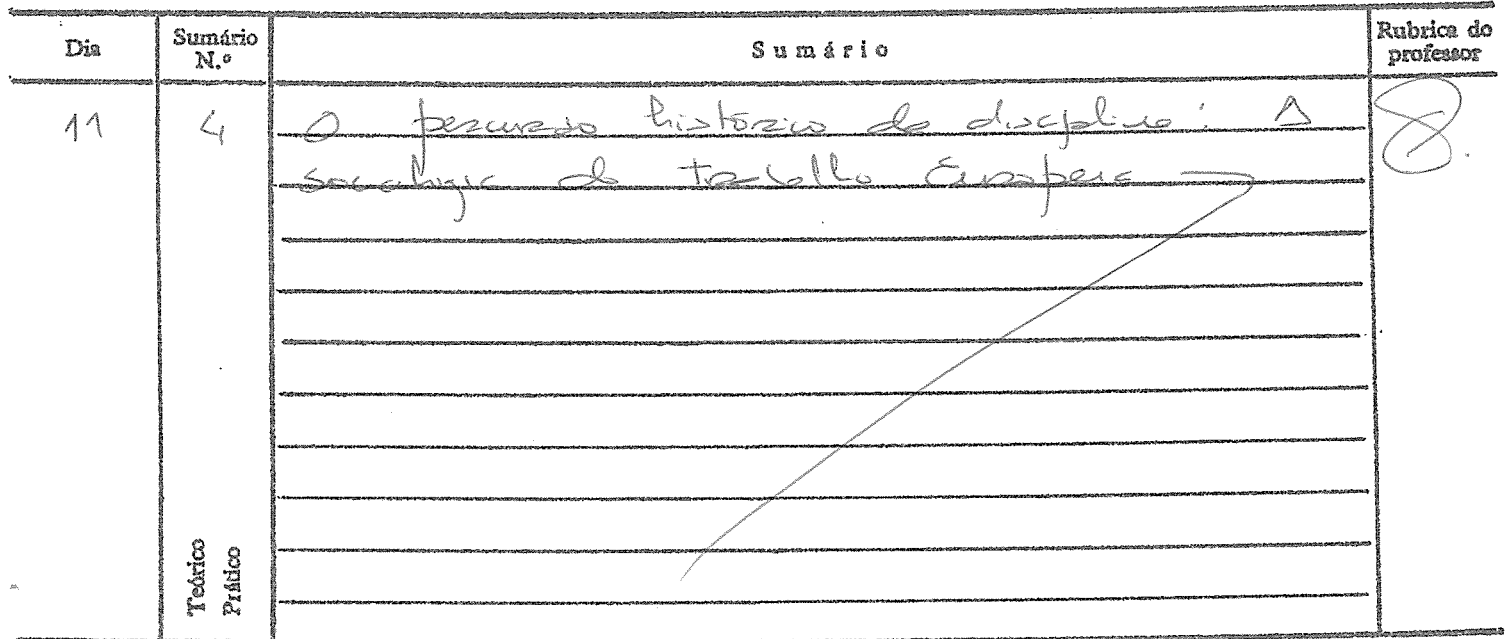 Dia Sumário N.º Sumário Rubrica do professor
11 4 O percurso histórico da disciplina: A
sociologia do trabalho Europeia
Teórico
Prático